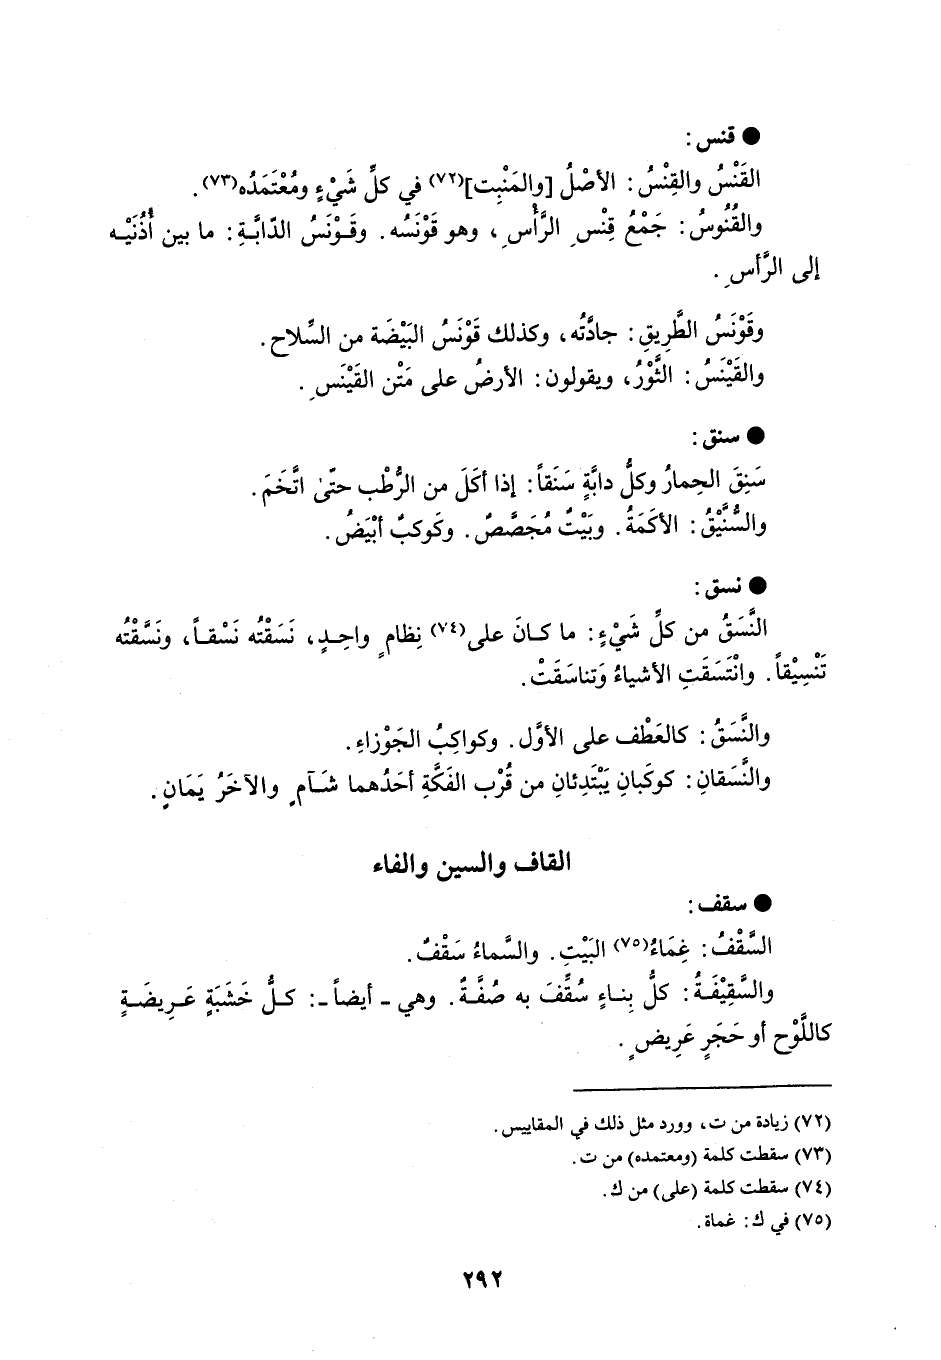 ● قنس :
القَنْسُ والقِنْسُ : الأصْلُ [والمَنْبِت](٧٢) في كلِّ شَيْءٍ ومُعْتَمَدُه(٧٣) .
والقُنُوسُ : جَمْعُ قِنْسِ الرَّأْسِ ، وهو قَوْنَسُه . وقَوْنَسُ الدّابَّةِ : ما بين أُذُنَيْه
إلى الرَّأسِ .
وقَوْنَسُ الطَّرِيقِ : جادَّتُه ، وكذلك قَوْنَسُ البَيْضَة من السِّلاح .
والقَيْنَسُ : الثَّوْرُ ، ويقولون : الأرضُ على مَتْن القَيْنَسِ .
● سنق :
سَنِقَ الحِمارُ وكلُّ دابَّةٍ سَنَقاً : إذا أكَلَ من الرُّطْب حتّىٰ اتَّخَمَ .
والسُّنَّيْقُ : الأكَمَةُ . وبَيْتٌ مُجَصَّصٌ . وكَوكبٌ أبْيَضُ .
● نسق :
النَّسَقُ من كلِّ شَيْءٍ : ما كانَ على(٧٤) نِظامٍ واحِدٍ ، نَسَقْتُه نَسْقاً ، ونَسَّقْتُه
تَنْسِيْقاً . وانْتَسَقَتِ الأشياءُ وَتناسَقَتْ .
والنَّسَقُ : كالعَطْف على الأوَّل . وكواكِبُ الجَوْزاءِ .
والنَّسَقانِ : كوكَبانِ يَبْتَدِئانِ من قُرْب الفَكَّةِ أحَدُهما شَآمٍ والآخَرُ يَمَانٍ .
القاف والسين والفاء
● سقف :
السَّقْفُ : غِمَاءُ(٧٥) البَيْتِ . والسَّماءُ سَقْفٌ .
والسَّقِيْفَةُ : كلُّ بِناءٍ سُقِّفَ به صُفَّةٌ . وهي ـ أيضاً ـ : كلُّ خَشَبَةٍ عَرِيضَةٍ
كاللَّوْح أو حَجَرٍ عَرِيضٍ .
(٧٢) زيادة من ت ، وورد مثل ذلك في المقاييس .
(٧٣) سقطت كلمة (ومعتمده) من ت .
(٧٤) سقطت كلمة (على) من ك .
(٧٥) في ك : غماة .
٢٩٢